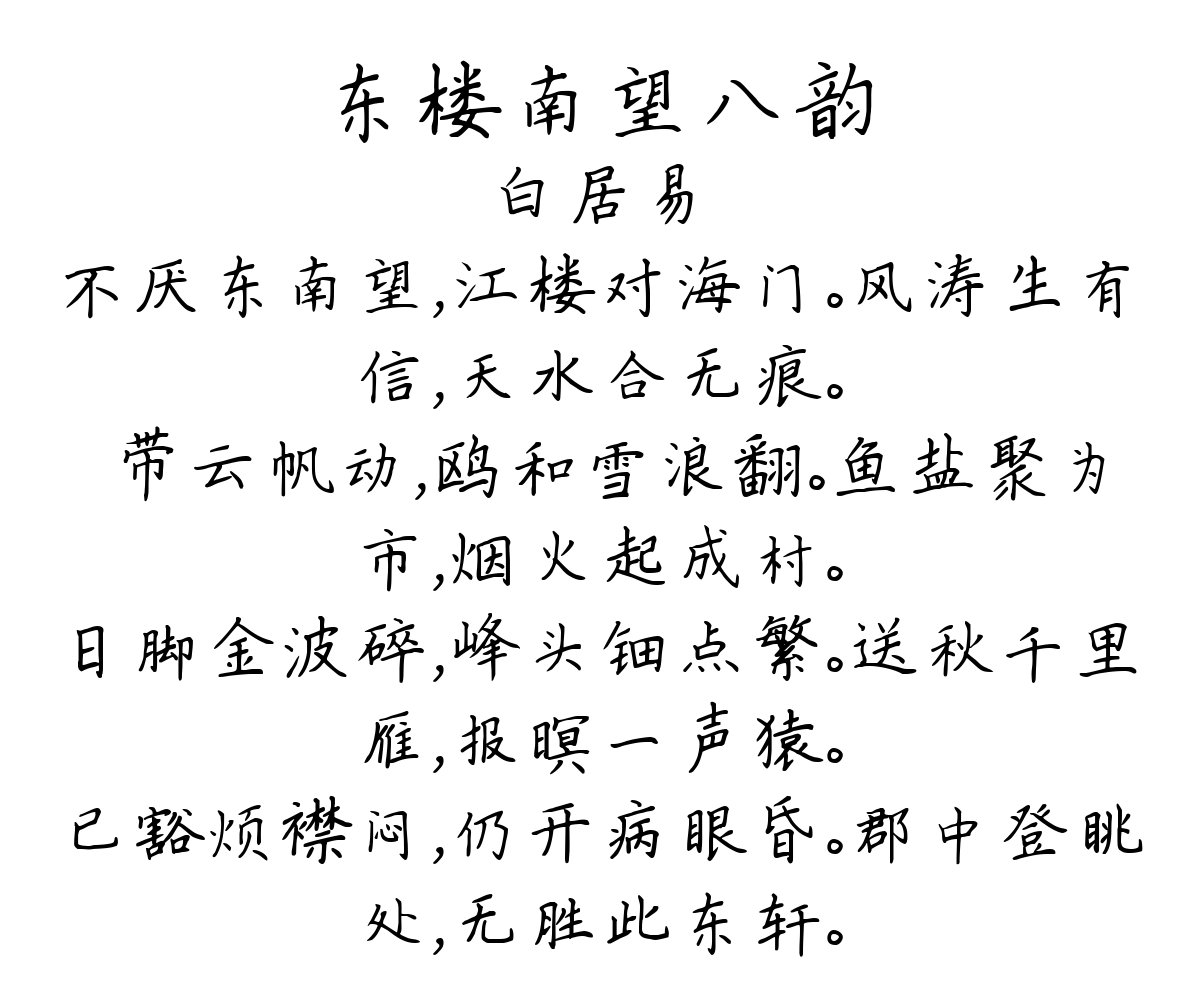 东楼南望八韵
白居易
不厌东南望,江楼对海门。风涛生有
信,天水合无痕。
带云帆动,鸥和雪浪翻。鱼盐聚为
市,烟火起成村。
日脚金波碎,峰头钿点繁。送秋千里
雁,报暝一声猿。
已豁烦襟闷,仍开病眼昏。郡中登眺
处,无胜此东轩。